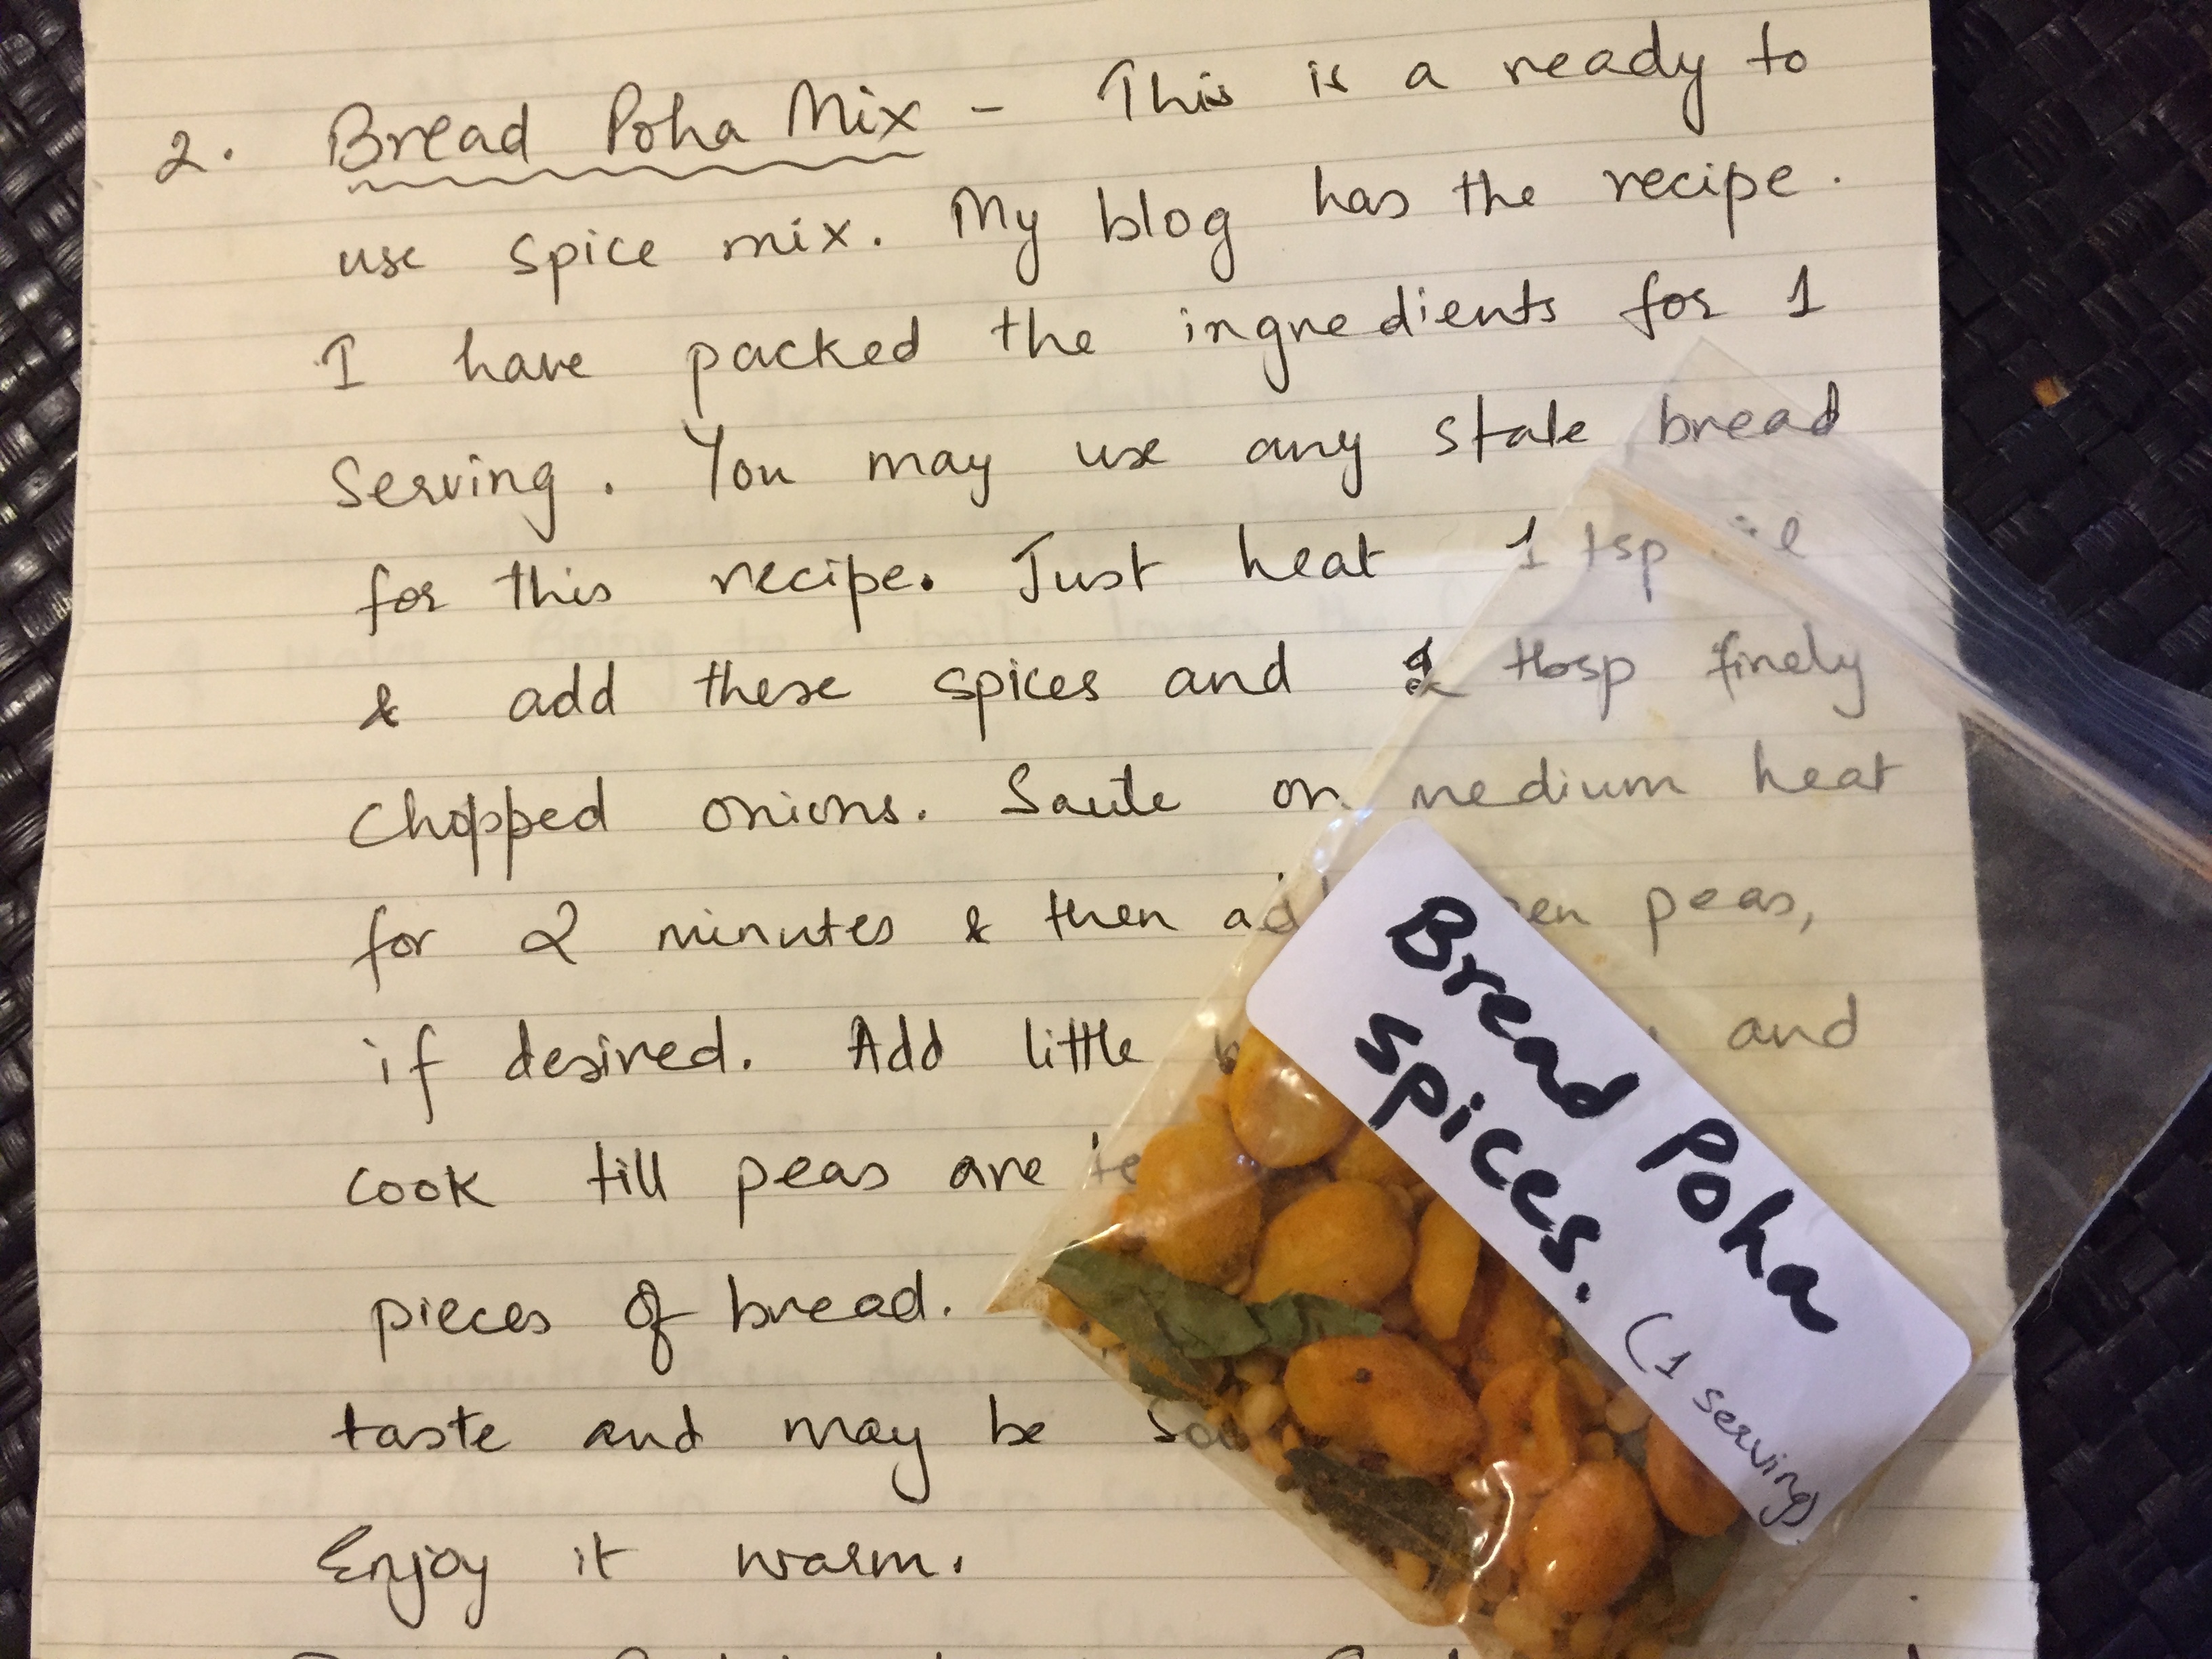 2. Bread Poha Mix - This is a ready to
use spice mix. My blog has the recipe.
I have packed the ingredients for 1
Serving. You may use any stale bread
for this recipe. Just heat 1 tsp oil
& add these spices and 2 tbsp finely
Chopped onions. Saute on medium heat
for 2 minutes & then peas,
if desired. Add little and
cook till peas are
pieces of bread.
taste and may be
Enjoy it warm.
Bread Poha
spices.
(1 serving)